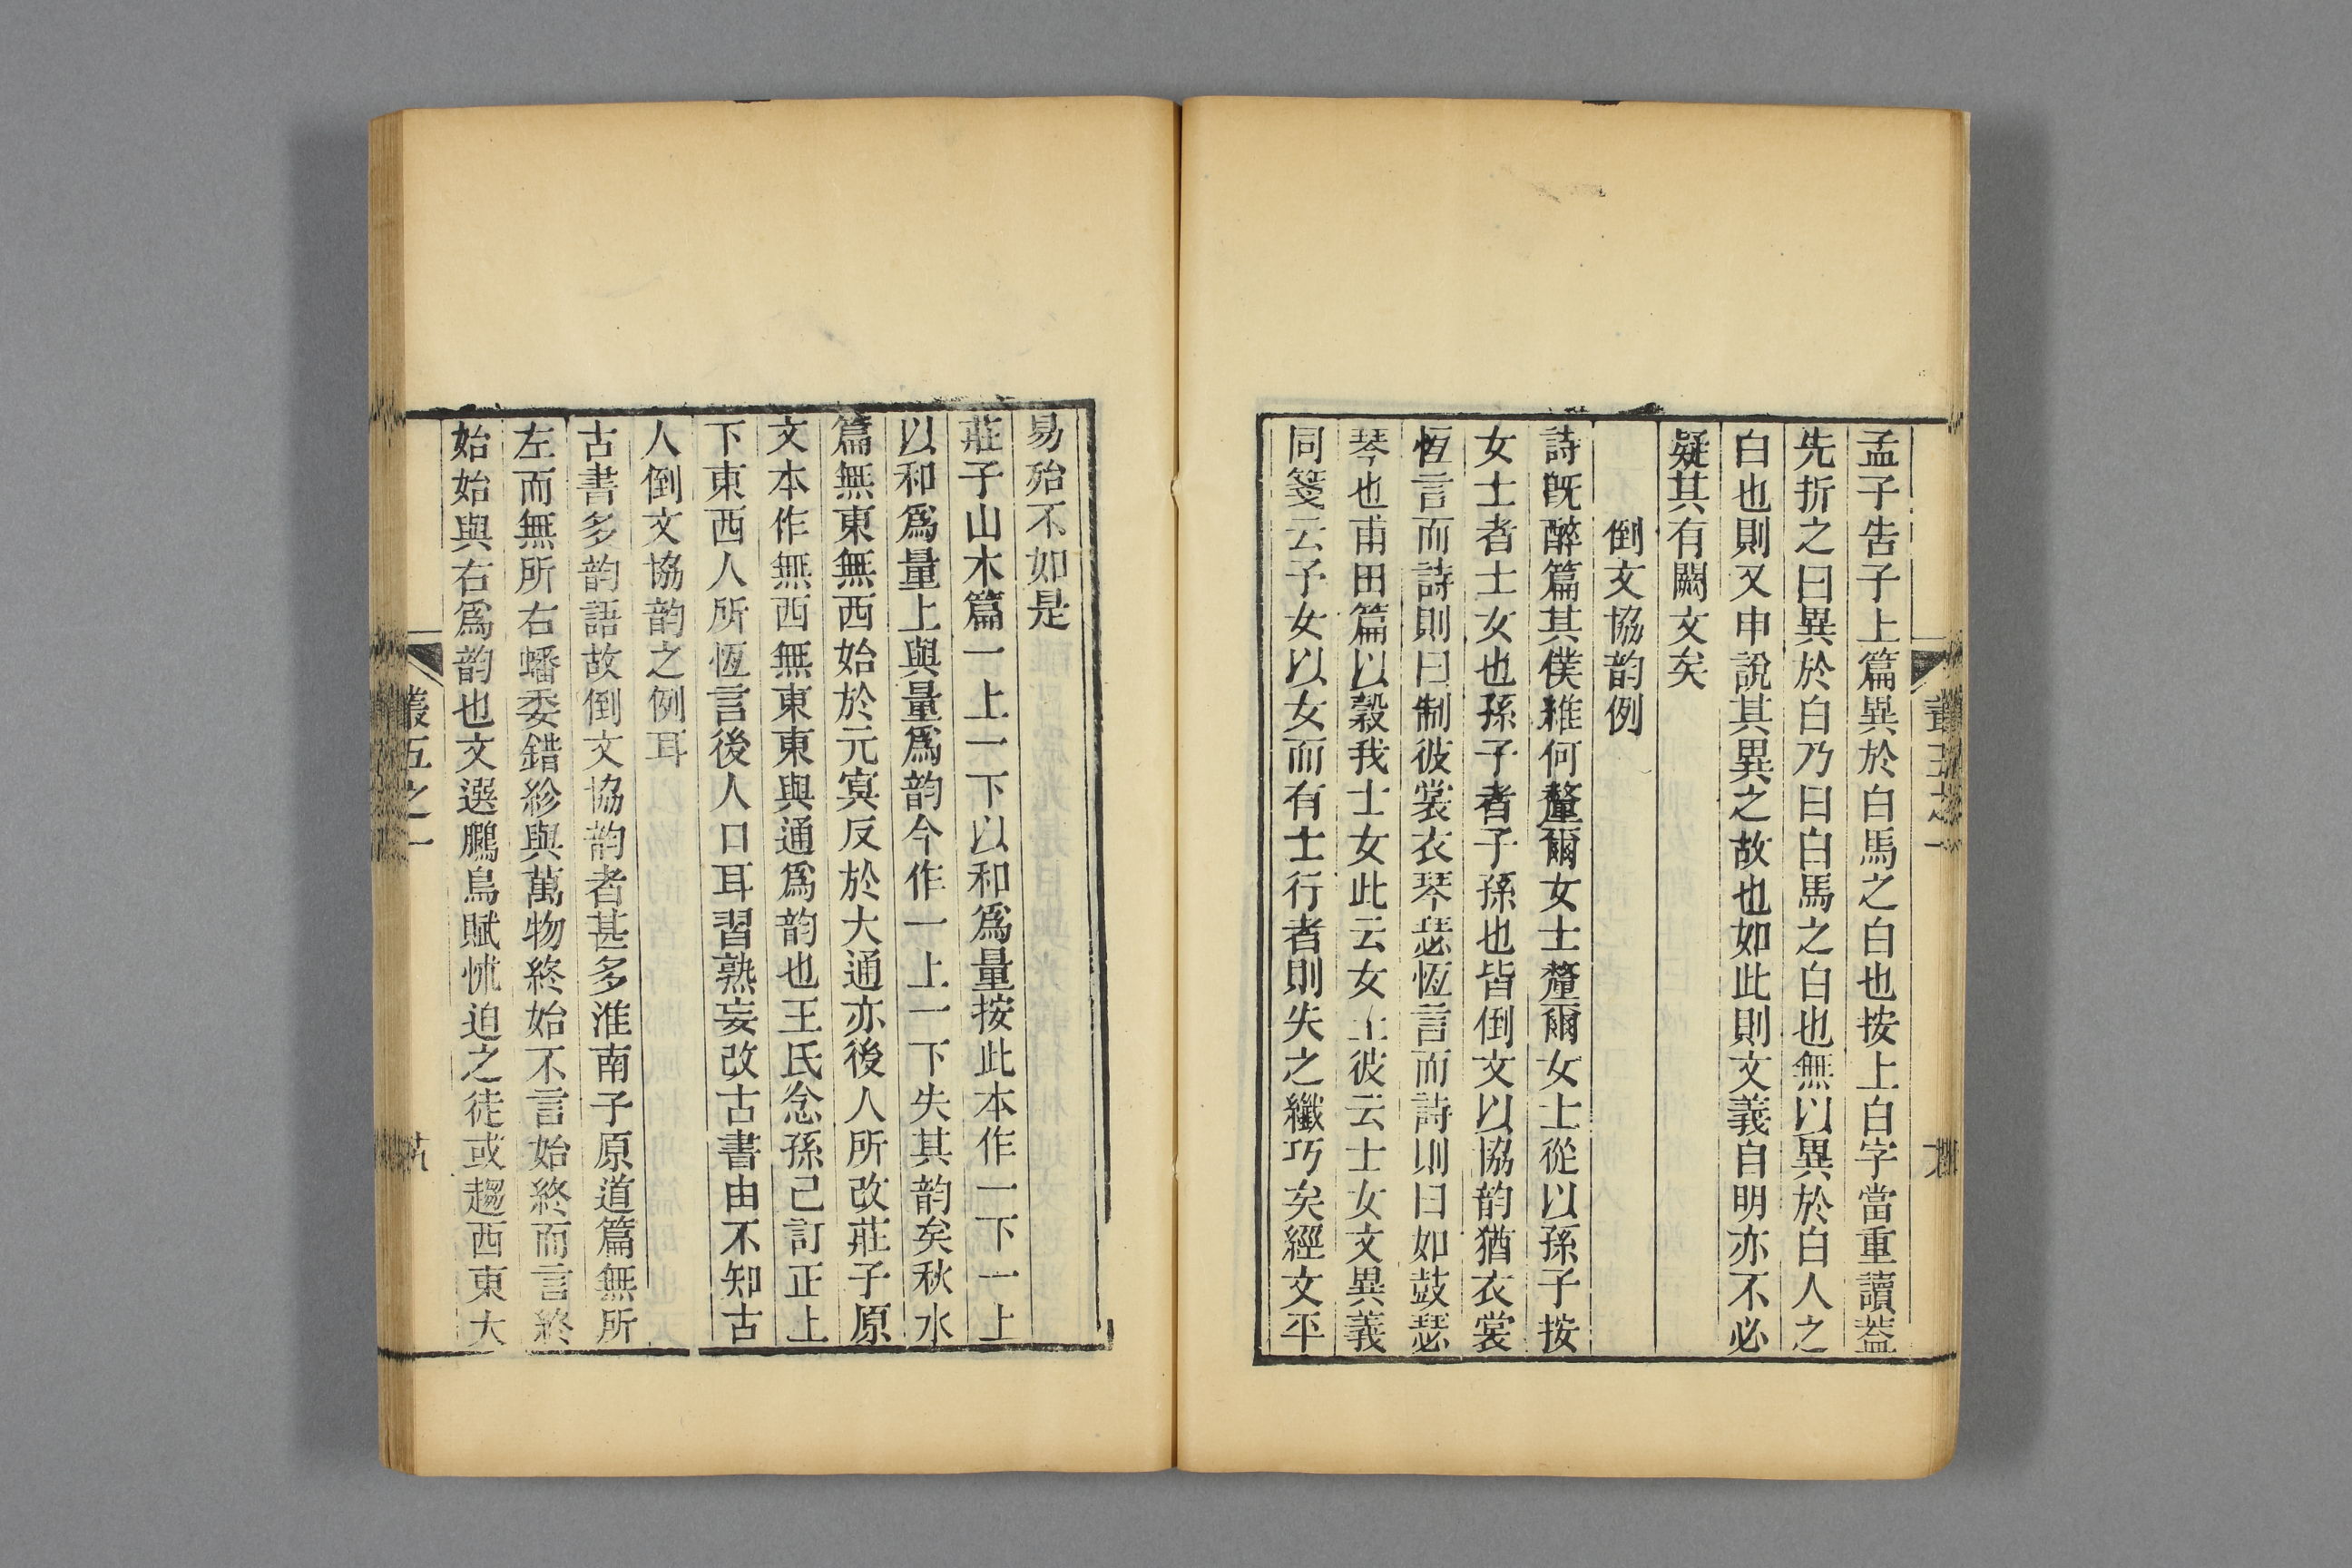 孟子告子上篇異於白馬之白也按上白字當重讀葢
先折之曰異於白乃曰白馬之白也無以異於白人之
白也則又申說其異之故也如此則文義自明亦不必
疑其有闕文矣
倒文協韵例
詩旣醉篇其僕維何釐爾女士釐爾女士從以孫子按
女士者士女也孫子者子孫也皆倒文以協韵猶衣裳
恆言而詩則曰制彼裳衣琴瑟恆言而詩則曰如鼓瑟
琴也甫田篇以穀我士女此云女士彼云士女文異義
同箋云予女以女而有士行者則失之纖巧矣經文平
易殆不如是
莊子山木篇一上一下以和爲量按此本作一下一上
以和爲量上與量爲韵今作一上一下失其韵矣秋水
篇無東無西始於元冥反於大通亦後人所改莊子原
文本作無西無東東與通爲韵也王氏念孫已訂正上
下東西人所恆言後人口耳習熟妄改古書由不知古
人倒文協韵之例耳
古書多韵語故倒文協韵者甚多淮南子原道篇無所
左而無所右蟠委錯紾與萬物終始不言始終而言終
始始與右爲韵也文選鵩鳥賦怵迫之徒或趨西東大
叢五之一